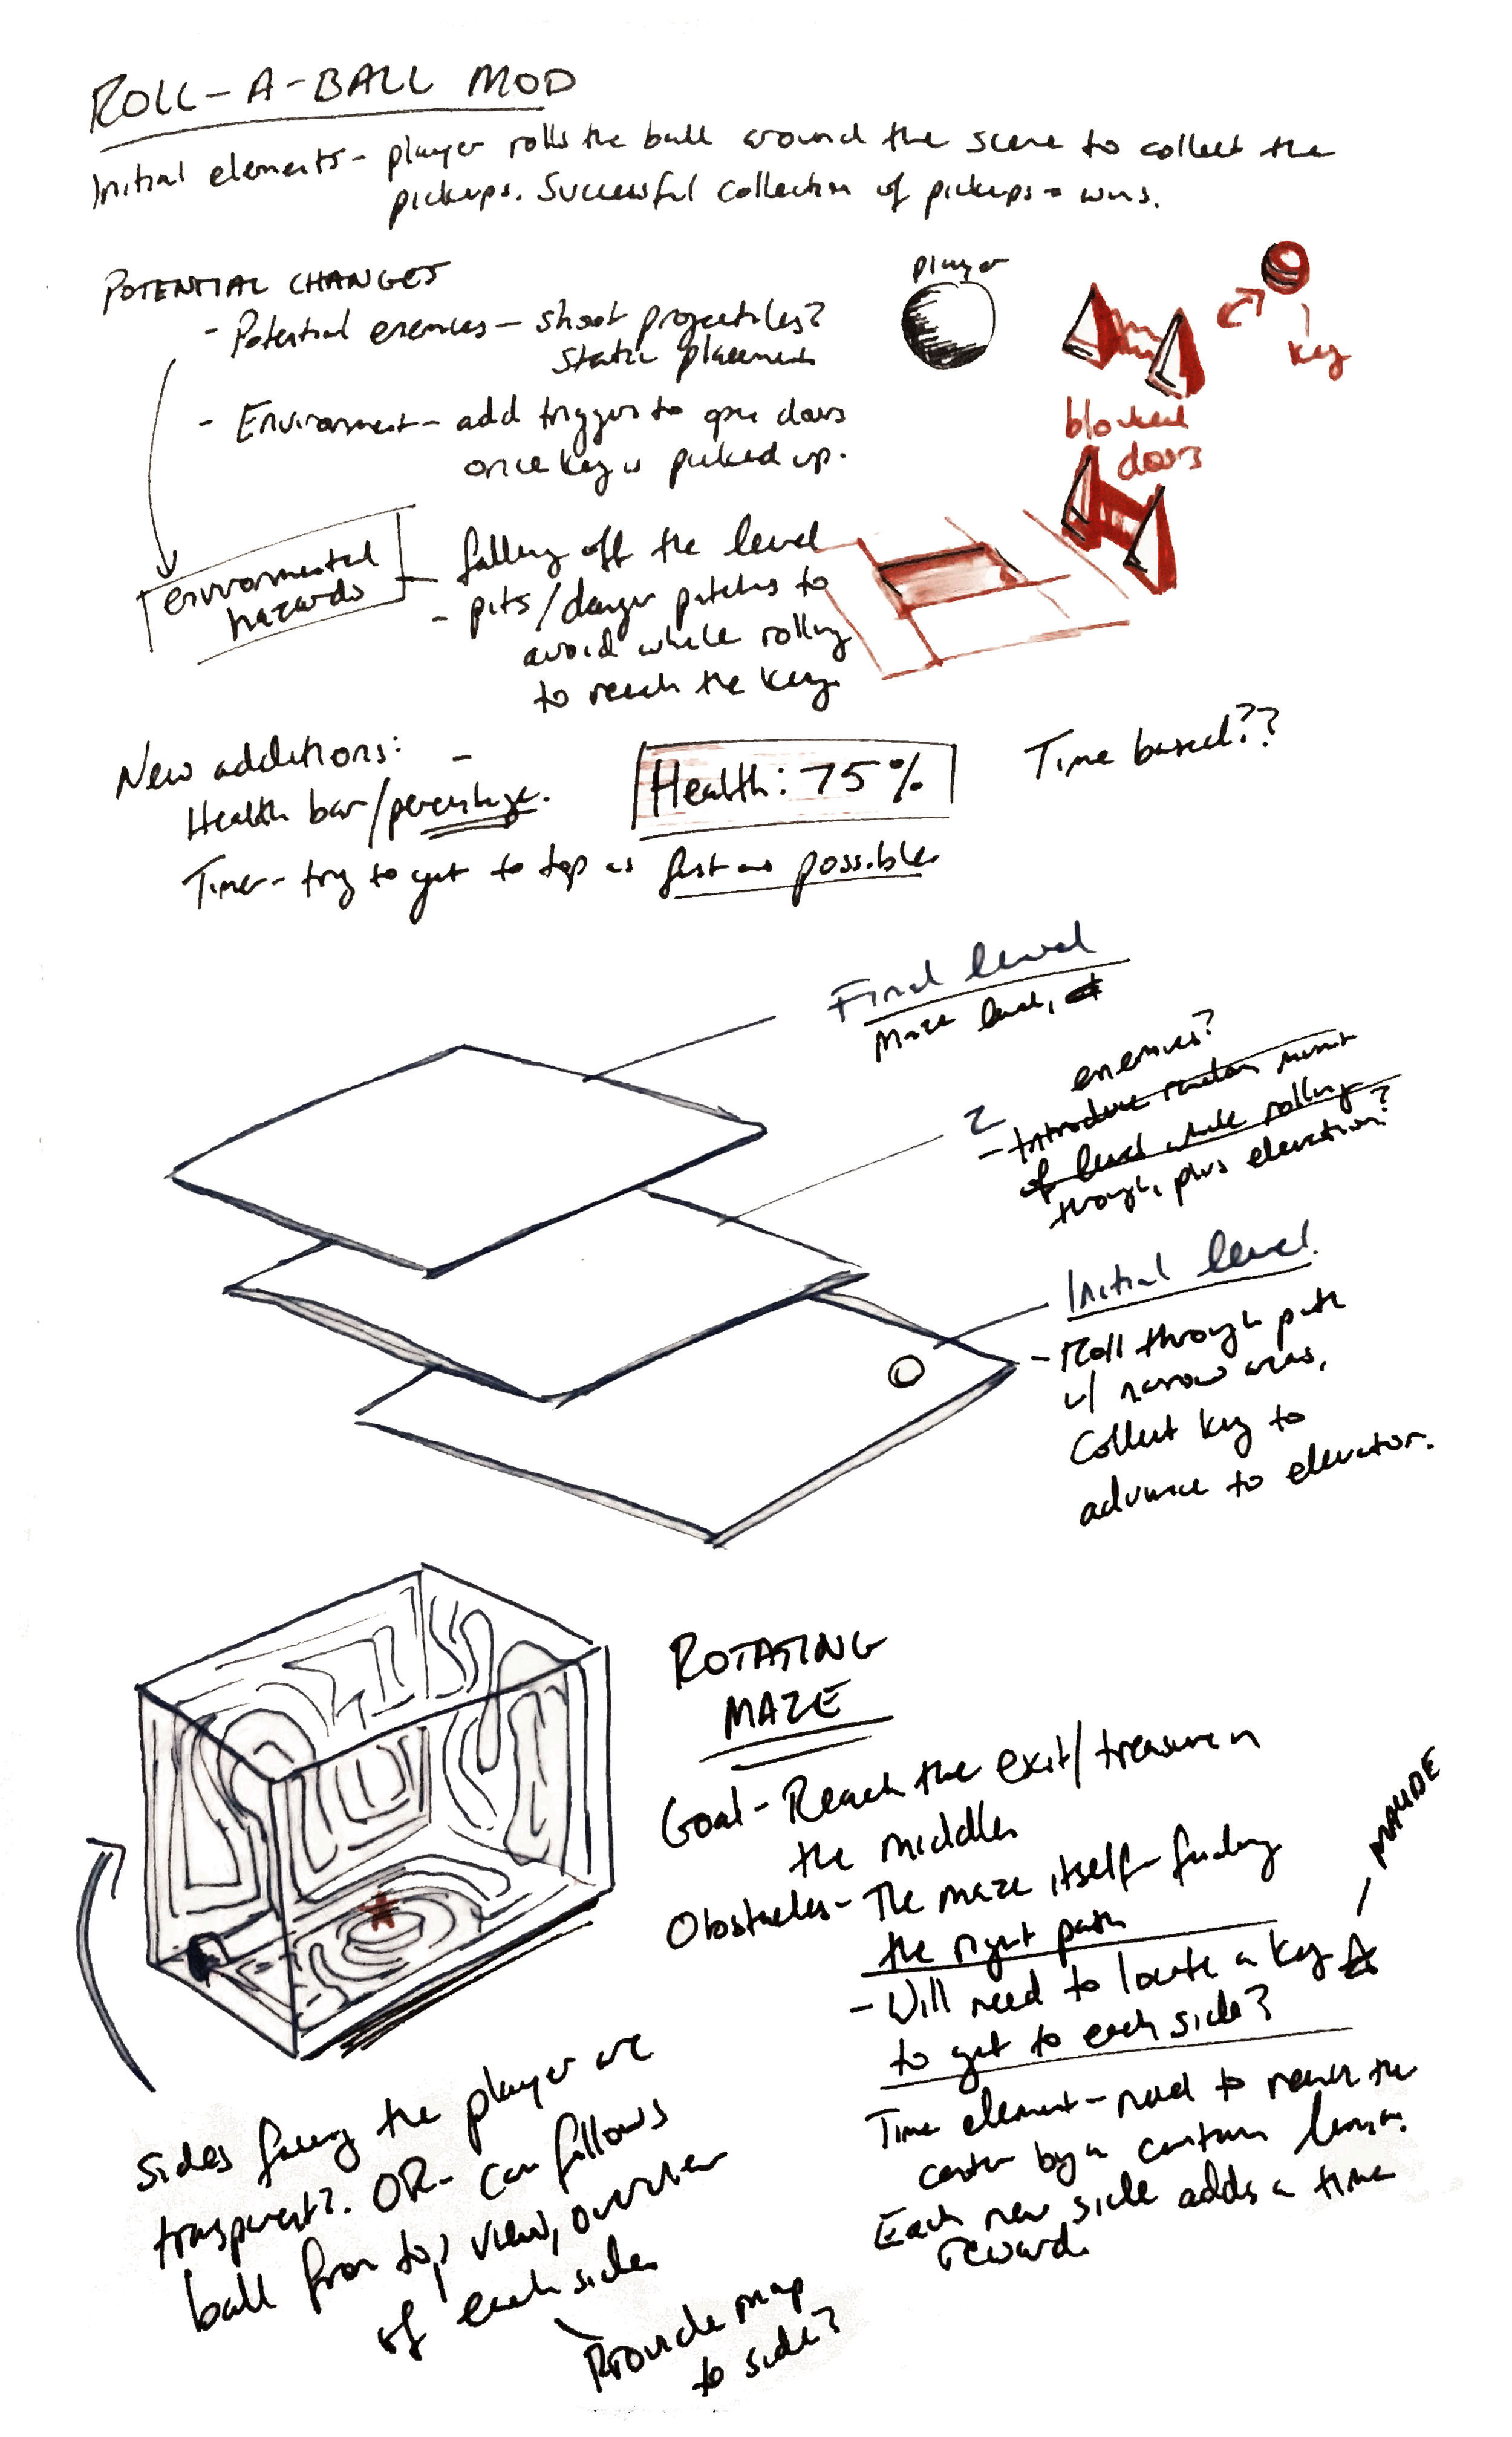 ROLL-A-BALL MOD
Initial elements - player rolls the ball around the scene to collect the
pickups. Successful collection of pickups = wins.
POTENTIAL CHANGES
- Potential enemies - shoot projectiles?
static placement
- Environment - add triggers to open doors
once key is picked up.
player
key
blocked
doors
environmental
hazards
- falling off the level
- pits/danger patches to
avoid while rolling
to reach the key
New additions:
Health bar/percentage.
Health: 75%
Time based??
Timer - try to get to top as fast as possible
Final level
Maze level,
enemies?
2
- Introduce random
of level while rolling
through, plus elevation?
Initial level
- Roll through path
w/ narrow areas,
Collect key to
advance to elevator.
ROTATING
MAZE
Goal - Reach the exit/treasure in
the middle
Obstacles - The maze itself - finding
the right path
- Will need to locate a key
to get to each side?
Time element - need to reach the
center by a certain
Each new side adds a time
reward.
sides facing the player are
transparent?. OR - cam follows
ball from top view, overview
of each side
Provide map
to side?